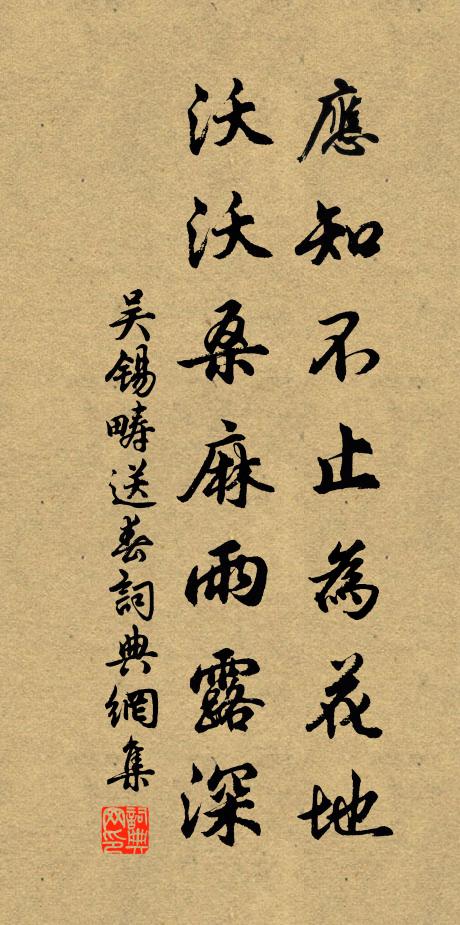 應知不止為花地
沃沃桑麻雨露深
吳錫疇送春詞典網集
詞典网印